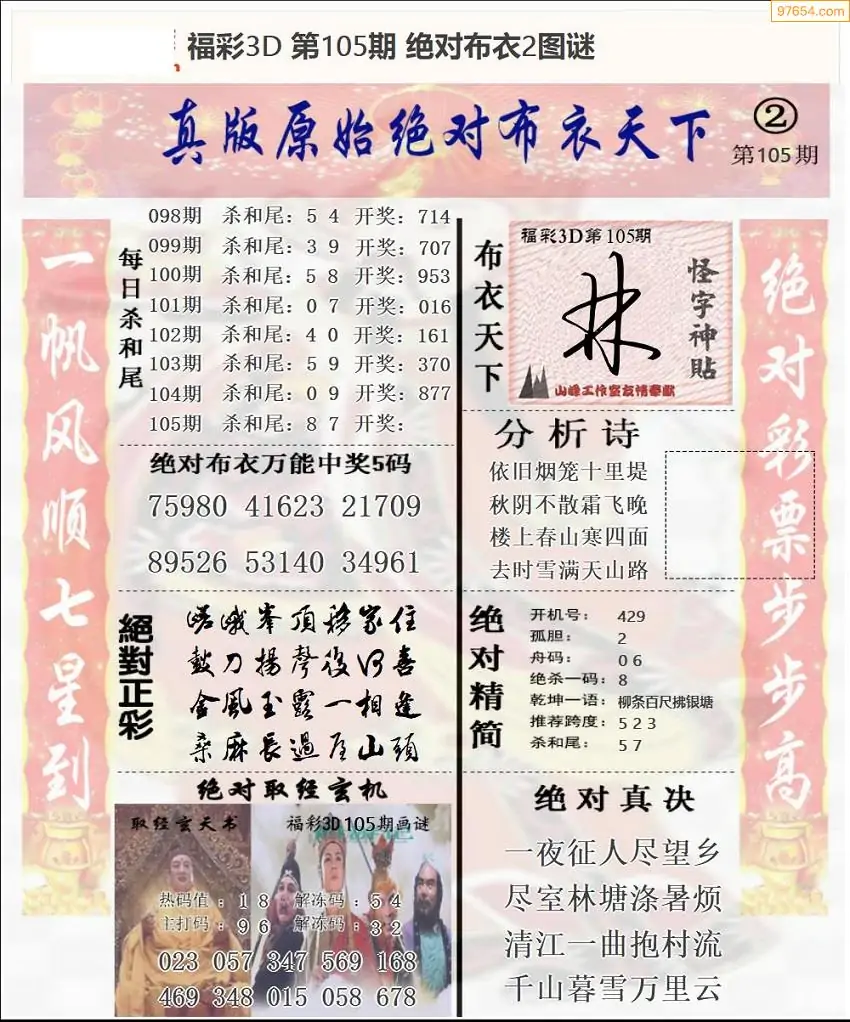 97654.com
福彩3D 第105期 绝对布衣2图谜
真版原始绝对布衣天下
②
第105期
一帆风顺七星到
每日杀和尾
098期 杀和尾: 5 4 开奖: 714
099期 杀和尾: 3 9 开奖: 707
100期 杀和尾: 5 8 开奖: 953
101期 杀和尾: 0 7 开奖: 016
102期 杀和尾: 4 0 开奖: 161
103期 杀和尾: 5 9 开奖: 370
104期 杀和尾: 0 9 开奖: 877
105期 杀和尾: 8 7 开奖:
绝对布衣万能中奖5码
75980 41623 21709
89526 53140 34961
絕對正彩
嵯峨峯頂移家住
鼓刀揚聲後何喜
金風玉露一相逢
桑麻長過屋山頭
绝对取经玄机
取经玄天书
福彩3D105期画谜
热码值 : 1 8 解冻码 : 5 4
主打码 : 9 6 解冻码 : 3 2
023 057 347 569 168
469 348 015 058 678
布衣天下
福彩3D第105期
怪字神贴
山峰工作室友情奉献
分析诗
依旧烟笼十里堤
秋阴不散霜飞晚
楼上春山寒四面
去时雪满天山路
绝对精简
开机号: 429
孤胆: 2
舟码: 0 6
绝杀一码: 8
乾坤一语: 柳条百尺拂银塘
推荐跨度: 5 2 3
杀和尾: 5 7
绝对真决
一夜征人尽望乡
尽室林塘涤暑烦
清江一曲抱村流
千山暮雪万里云
绝对彩票步步高